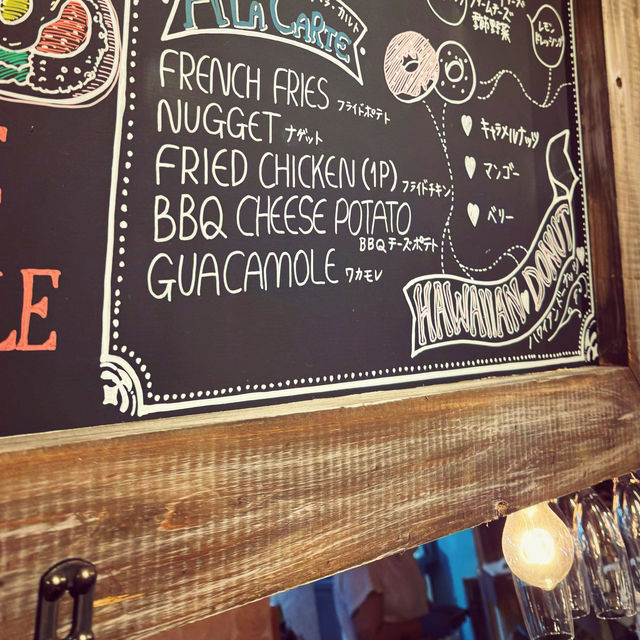 A LA CARTE
ア・ラ・カルト
FRENCH FRIES フライドポテト
NUGGET ナゲット
FRIED CHICKEN (1P) フライドチキン
BBQ CHEESE POTATO
BBQ チーズ・ポテト
GUACAMOLE ワカモレ
レモン
キャラメルナッツ
マンゴー
ベリー
HAWAIIAN DONUT
LE